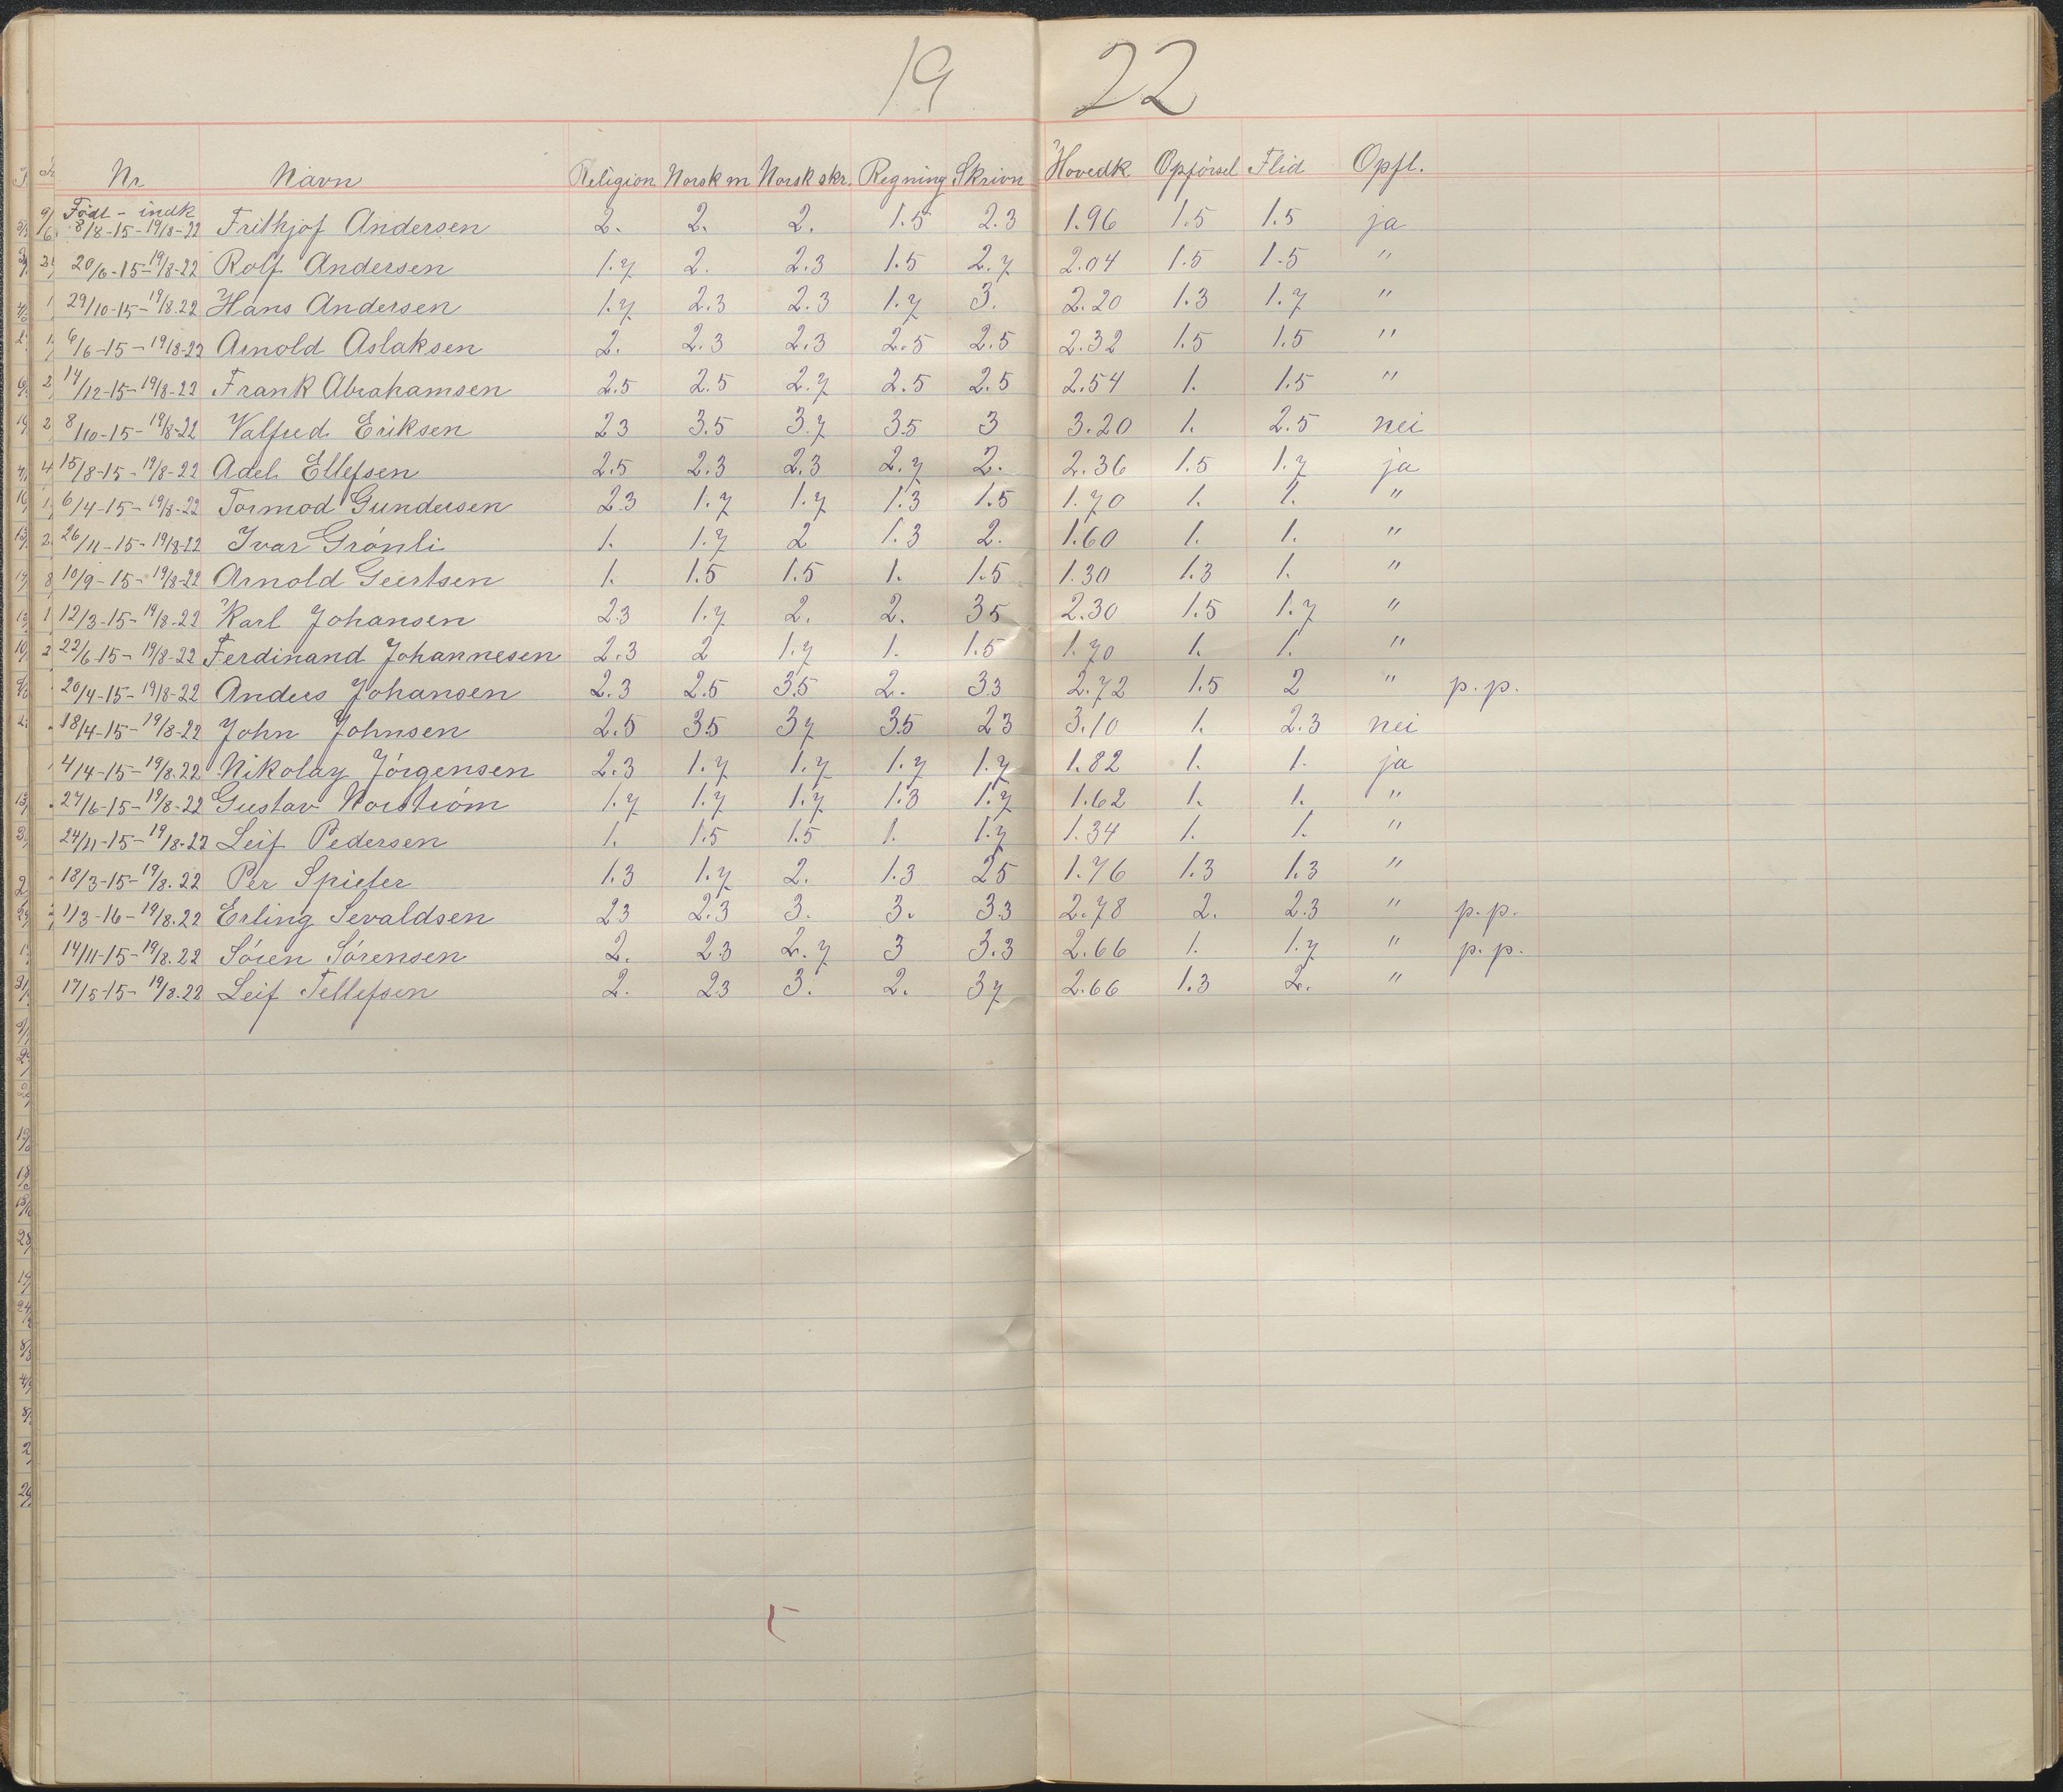 19 22
Nr Navn Religion Norsk m Norsk skr. Regning Skrivn Hovedk. Opförsel Flid Opfl.
Födt - indk
8/8-15-19/8-22 Frithjof Andersen 2. 2. 2. 1.5 2.3 1.96 1.5 1.5 ja
20/6-15-19/8-22 Rolf Andersen 1.7 2. 2.3 1.5 2.7 2.04 1.5 1.5 "
29/10-15-19/8.22 Hans Andersen 1.7 2.3 2.3 1.7 3. 2.20 1.3 1.7 "
6/6-15-19/8-22 Arnold Aslaksen 2. 2.3 2.3 2.5 2.5 2.32 1.5 1.5 "
14/12-15-19/8-22 Frank Abrahamsen 2.5 2.5 2.7 2.5 2.5 2.54 1. 1.5 "
8/10-15-19/8-22 Valfred Eriksen 23 3.5 3.7 35 3 3.20 1. 2.5 nei
15/8-15-19/8-22 Adel. Ellefsen 2.5 2.3 2.3 2.7 2. 2.36 1.5 1.7 ja
6/4-15-19/8-22 Tormod Gundersen 23 1.7 1.7 1.3 1.5 1.70 1. 1. "
26/11-15-19/8-22 Ivar Grönli 1. 1.7 2 1.3 2. 1.60 1. 1. "
10/9-15-19/8-22 Arnold Geertsen 1. 1.5 1.5 1. 1.5 1.30 1.3 1. "
12/3-15-19/8-22 Karl Johansen 23 1.7 2. 2. 35 2.30 1.5 1.7 "
22/6-15-19/8-22 Ferdinand Johannesen 2.3 2 1.7 1. 1.5 1.70 1. 1. "
20/4-15-19/8-22 Anders Johansen 2.3 2.5 3.5 2. 33 2.72 1.5 2 " p.p.
18/4-15-19/8-22 John Johnsen 2.5 35 37 35 23 3.10 1. 2.3 nei
4/4-15-19/8.22 Nikolay Jörgensen 2.3 1.7 1.7 1.7 1.7 1.82 1. 1. ja
27/6-15-19/8-22 Gustav Norström 1.7 1.7 1.7 1.3 1.7 1.62 1. 1. "
24/11-15-19/8-22 Leif Pedersen 1. 1.5 1.5 1. 1.7 1.34 1. 1. "
18/3-15-19/8.22 Per Spieler 1.3 1.7 2. 1.3 25 1.76 1.3 1.3 "
1/3-16-19/8.22 Erling Sevaldsen 23 2.3 3. 3. 33 2.78 2. 2.3 " p.p.
14/11-15-19/8.22 Sören Sörensen 2. 23 2.7 3 3.3 2.66 1. 1.7 " p.p.
17/5-15-19/8.22 Leif Tellefsen 2. 23 3. 2. 37 2.66 1.3 2. "